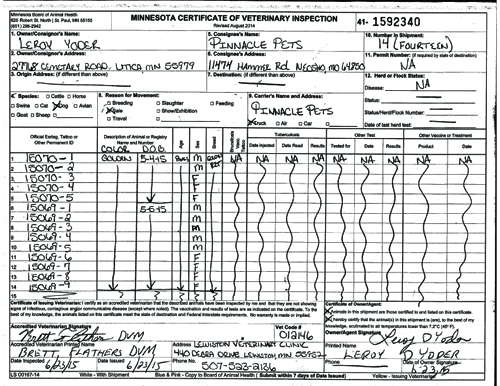 Minnesota Board of Animal Health
625 Robert St. North | St. Paul, MN 55155
(651) 296-2942
MINNESOTA CERTIFICATE OF VETERINARY INSPECTION
Revised August 2004
41- 1592340
1. Owner/Consignor's Name:
LEROY YODER
2. Owner/Consignor's Address:
27718 CEMETARY ROAD, UTICA, MN 55979
3. Origin Address: (if different than above)
5. Consignee's Name:
PINNACLE PETS
6. Consignee's Address:
11474 HAMMER Rd NEOSHO, MO 64850
7. Destination: (if different than above)
10. Number in Shipment:
14 (FOURTEEN)
11. Permit Number: (if required by state of destination)
NA
12. Herd or Flock Status:
Disease: NA
Status:
Status/Herd/Flock Number:
Date of last herd test:
4. Species: Cattle Horse
Swine Cat Dog Avian
Goat Sheep
8. Reason for Movement:
Breeding Slaughter Feeding
Sale Show/Exhibition
Travel
9. Carrier's Name and Address:
PINNACLE PETS
Truck Air Car
Official Eartag, Tattoo or Other Permanent ID
Description of Animal or Registry Name and Number
COLOR D.O.B.
Age Sex Breed
Tuberculosis
Date Injected Date Read Results
Other Test
Tested for Date Results
Other Vaccine or Treatment
Product Date
1 15070-1 GOLDEN 5-4-15 M NA NA NA NA NA NA NA NA NA
2 15070-2 M
3 15070-3 F
4 15070-4 F
5 15070-5 F
6 15069-1 5-6-15 M
7 15069-2 M
8 15069-3 M
9 15069-4 M
10 15069-5 M
11 15069-6 F
12 15069-7 F
13 15069-8 F
14 15069-9 F
15
Certificate of Issuing Veterinarian: I certify as an accredited veterinarian that the described animals have been inspected by me and that they are not showing
signs of infectious, contagious and/or communicable disease (except where noted). The vaccination and results of tests are as indicated on the certificate. To the
best of my knowledge, the animals listed on this certificate meet the state of destination and Federal Interstate requirements. No warranty is made or implied.
Certificate of Owner/Agent:
animals in this shipment are those certified to and listed on this certificate.
I hereby certify that the animal(s) in this shipment is (are), to the best of my
knowledge, acclimated to air temperatures lower than 7.2°C (45° F).
Accredited Veterinarian Signature
DVM
Accredited Veterinarian Printed Name
BRETT FLATHERS DVM
Date Inspected
6/23/15
Date Issued
6/23/15
Vet Code #
01246
LEWISTON VETERINARY CLINIC
440 DEBRA DRIVE LEWISTON, MN 55952
507-523-2136
Owner/Agent Signature
Leroy D Yoder
Printed Name
LEROY D YODER
Date
6-23-15
LS 00167-14
White - With Shipment
Blue & Pink - Copy to Board of Animal Health (Submit within 7 days of Date Issued)
Yellow - Issuing Veterinarian